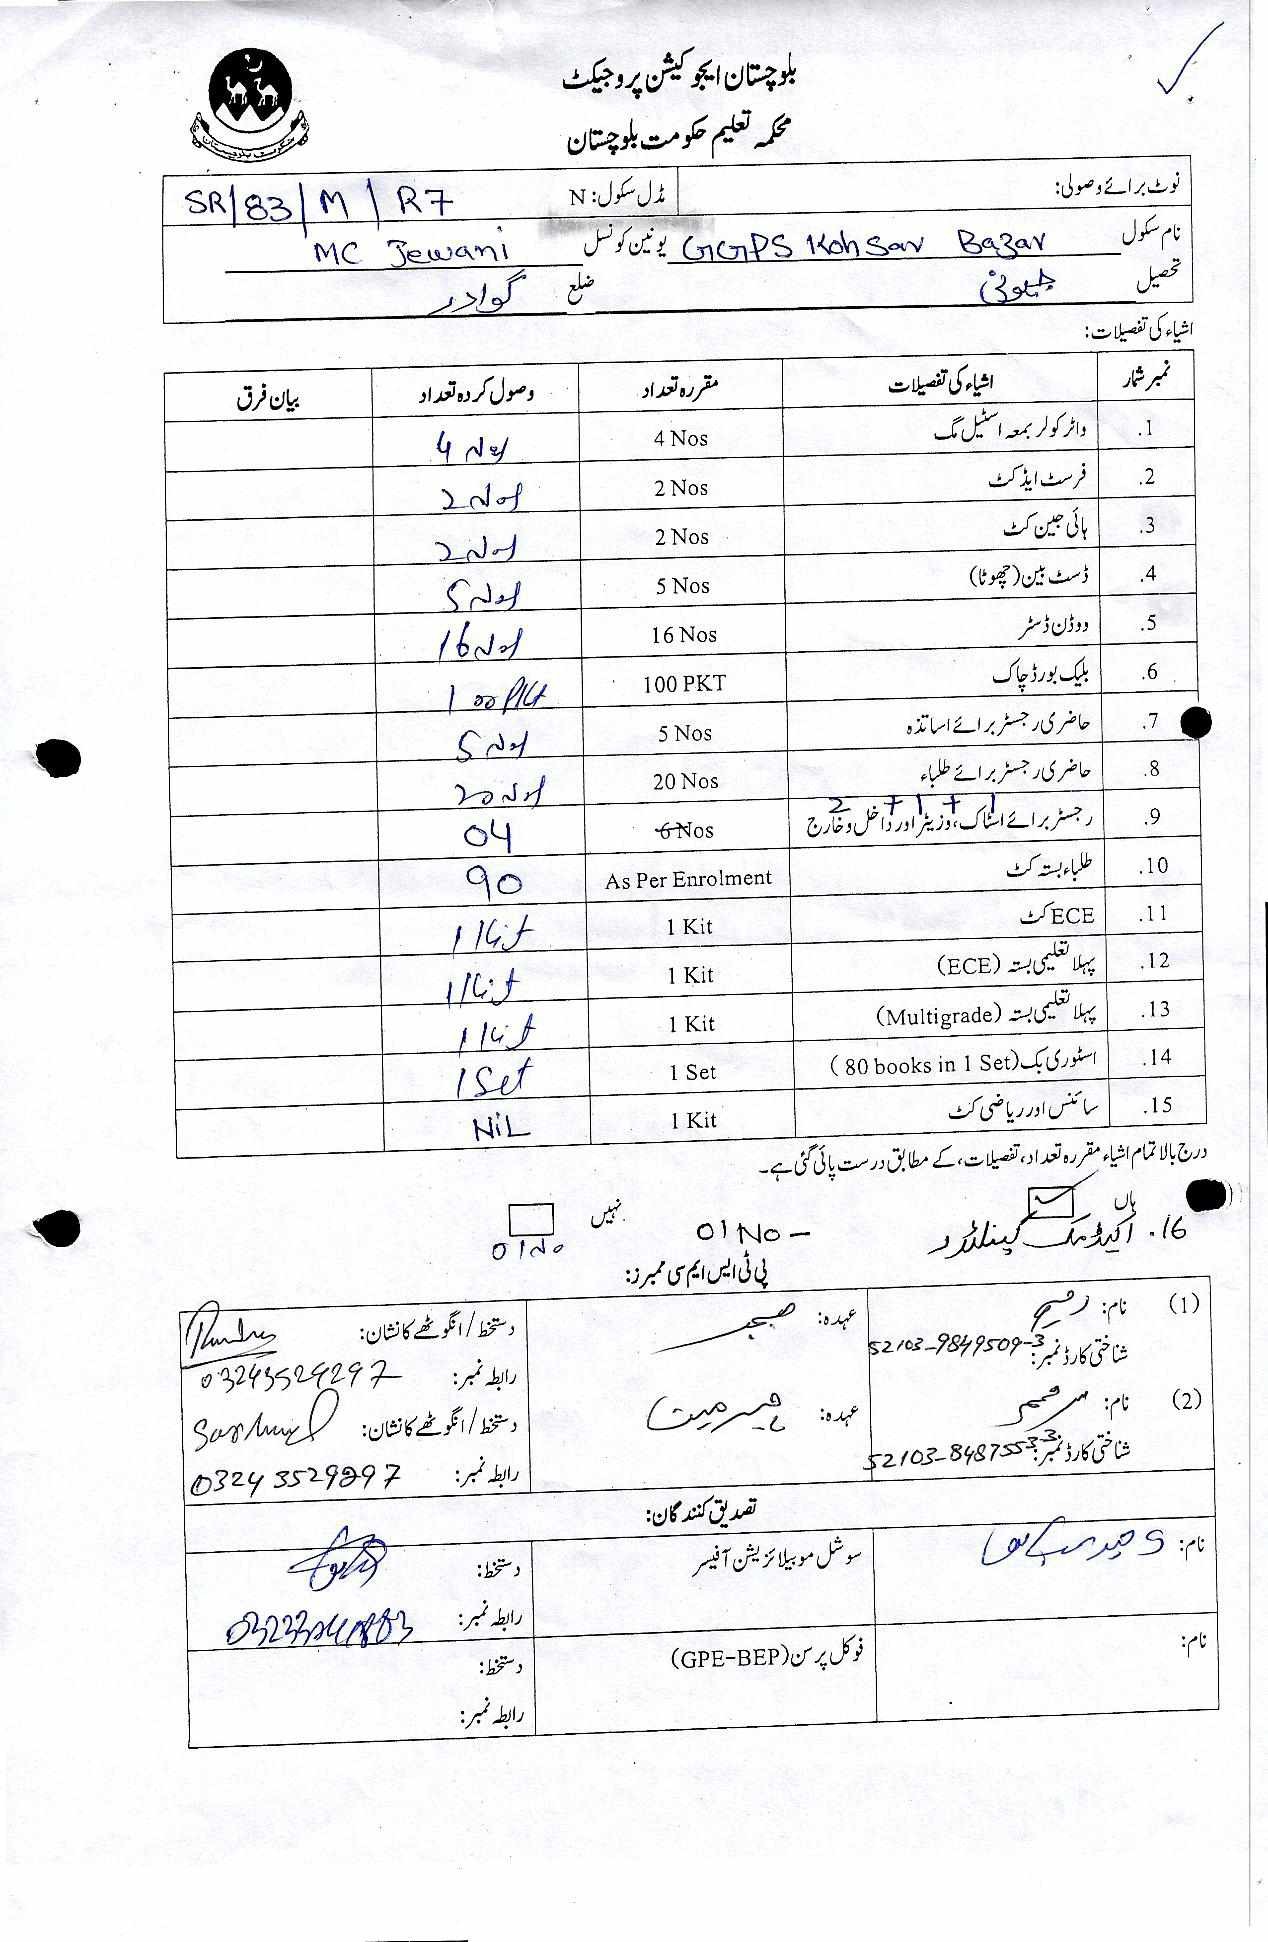 بلوچستان ایجوکیشن پروجیکٹ
محکمہ تعلیم حکومت بلوچستان
نوٹ برائے وصولی: مڈل سکول: N SR/83/M/R7
نام سکول GGPS Kohsar Bazar یونین کونسل MC Jewani
تحصیل جیونی ضلع گوادر
اشیاء کی تفصیلات:
نمبر شمار اشیاء کی تفصیلات مقررہ تعداد وصول کردہ تعداد بیان فرق
1. واٹر کولر بمعہ اسٹیل مگ 4 Nos 4 Nos
2. فرسٹ ایڈ کٹ 2 Nos 2 Nos
3. ہائی جین کٹ 2 Nos 2 Nos
4. ڈسٹ بین (چھوٹا) 5 Nos 5 Nos
5. ووڈن ڈسٹر 16 Nos 16 Nos
6. بلیک بورڈ چاک 100 PKT 100 PKT
7. حاضری رجسٹر برائے اساتذہ 5 Nos 5 Nos
8. حاضری رجسٹر برائے طلباء 20 Nos 20 Nos
2 + 1 + 1
9. رجسٹر برائے اسٹاک، وزیٹر اور داخل و خارج 6 Nos 04
10. طلباء بستہ کٹ As Per Enrolment 90
11. ECE کٹ 1 Kit 1 Kit
12. پہلا تعلیمی بستہ (ECE) 1 Kit 1 Kit
13. پہلا تعلیمی بستہ (Multigrade) 1 Kit 1 Kit
14. اسٹوری بک (80 books in 1 Set) 1 Set 1 Set
15. سائنس اور ریاضی کٹ 1 Kit NiL
درج بالا تمام اشیاء مقررہ تعداد، تفصیلات، کے مطابق درست پائی گئی ہے۔
ہاں نہیں
16. اکیڈمک کیلنڈر 01 No - 01 No
پی ٹی ایس ایم سی ممبرز:
(1) نام: عہدہ: دستخط/انگوٹھے کا نشان:
شناختی کارڈ نمبر: 52103-9849509-3 رابطہ نمبر: 03243529297
(2) نام: عہدہ: دستخط/انگوٹھے کا نشان:
شناختی کارڈ نمبر: رابطہ نمبر: 03243529297
تصدیق کنندگان:
نام: سوشل موبیلائزیشن آفیسر دستخط:
رابطہ نمبر:
نام: فوکل پرسن (GPE-BEP) دستخط:
رابطہ نمبر: